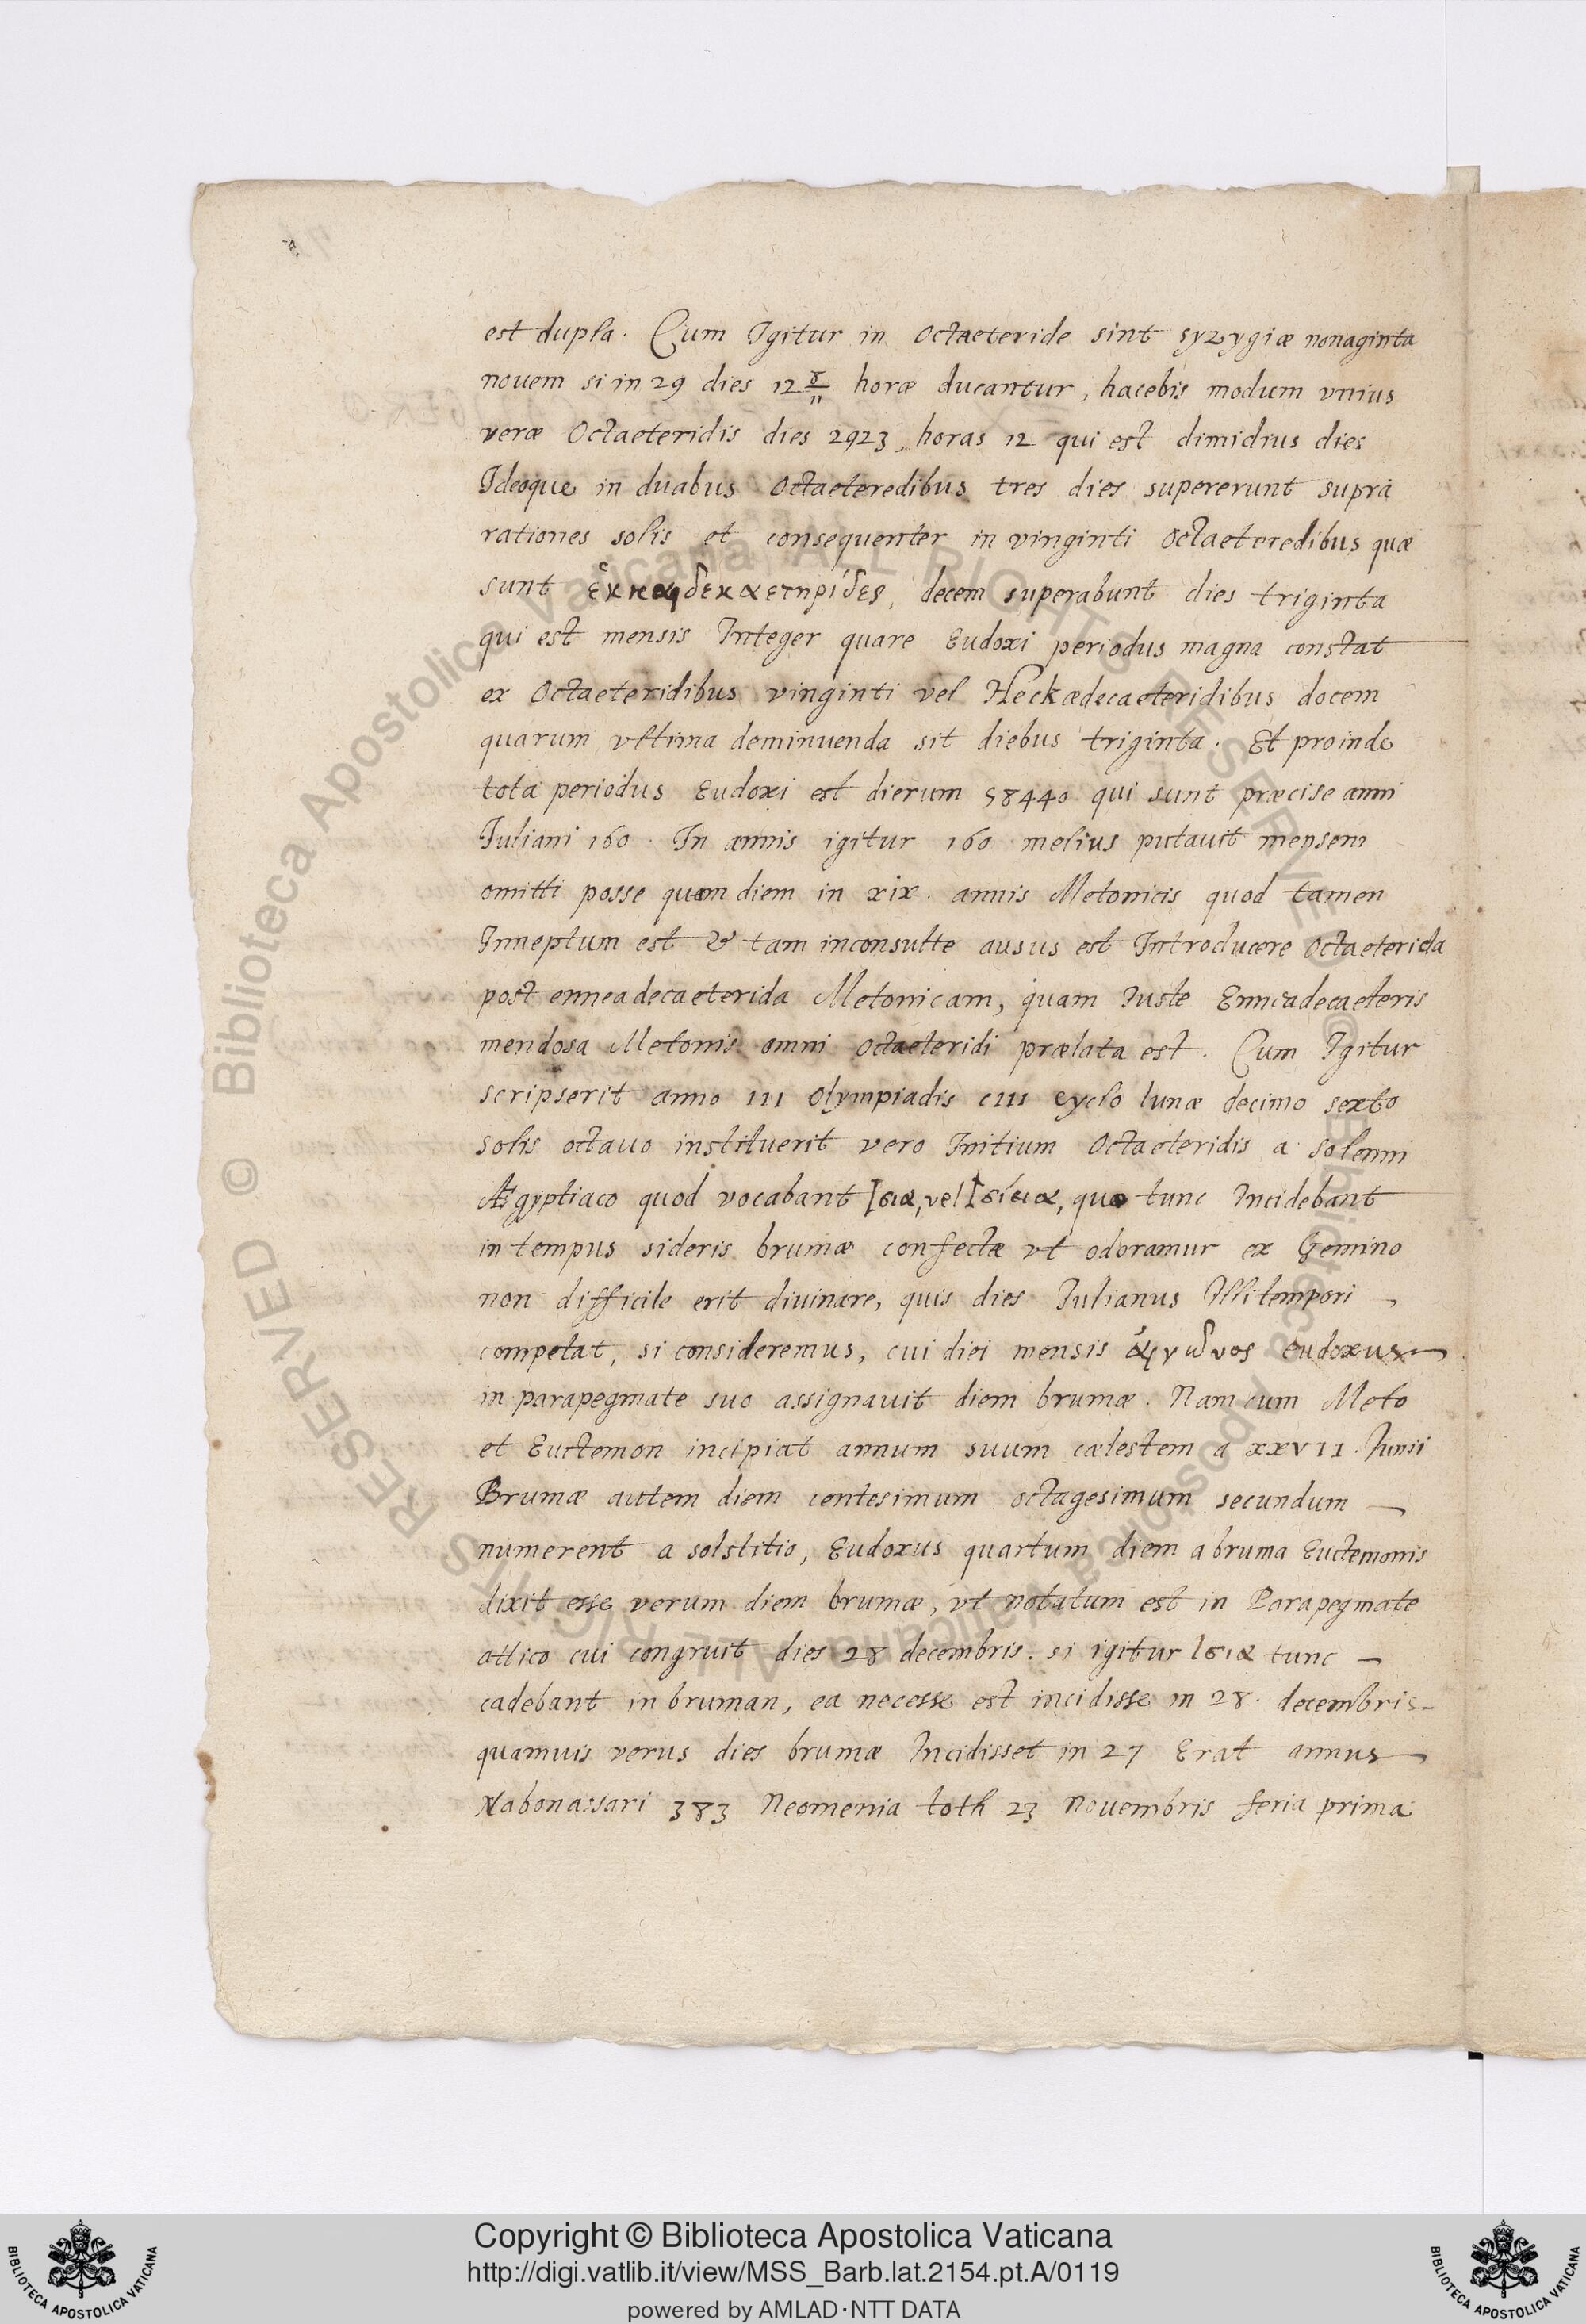 est dupla. Cum Igitur in Octaeteride sint syzygiæ nonaginta
nouem si in 29 dies 12 horæ ducantur, hacebis modum vnius
veræ Octaeteridis dies 2923, horas 12 qui est dimidius dies
Ideoque in duabus Octaeteredibus tres dies supererunt supra
rationes solis et consequenter in vinginti Octaeteredibus quæ
sunt ἑκκαιδεκαετηρίδες, decem superabunt dies triginta
qui est mensis Integer quare Eudoxi periodus magna constat
ex Octaeteridibus vinginti vel Heckædecaeteridibus docem
quarum vltima deminuenda sit diebus triginta. Et proinde
tota periodus Eudoxi est dierum 58440 qui sunt præcise anni
Iuliani 160. In annis igitur 160 melius putauit mensem
omitti posse quam diem in xix. annis Metonicis quod tamen
Inneptum est & tam inconsulte ausus est Introducere Octaeterida
post enneadecaeterida Metonicam, quam Iuste Enneadecaeteris
mendosa Metonis omni octaeteridi prælata est. Cum Igitur
scripserit anno III Olympiadis CIII cyclo lunæ decimo sexto
solis octauo instituerit vero Initium Octaeteridis a solemni
Ægyptiaco quod vocabant Ισια, vel Ισίεια, quo tunc Incidebant
in tempus sideris brumæ confectæ vt odoramur ex Gemino
non difficile erit diuinare, quis dies Iulianus Illi tempori
competat, si consideremus, cui diei mensis Eudoxus
in parapegmate suo assignauit diem brumæ. Nam cum Meto
et Euctemon incipiat annum suum cælestem a XXVII. Junii
Brumæ autem diem centesimum octagesimum secundum
numerent a solstitio, Eudoxus quartum diem a bruma Euctemonis
dixit esse verum diem brumæ, vt notatum est in Parapegmate
attico cui congruit dies 28 decembris. si igitur Ισια tunc
cadebant in bruman, ea necesse est incidisse in 28. decembris
quamuis verus dies brumæ Incidisset in 27 Erat annus
Nabonassari 383 Neomenia toth 23 Nouembris feria prima
© Biblioteca Apostolica Vaticana ALL RIGHTS RESERVED © Biblioteca Apostolica Vaticana ALL RIGHTS RESERVED
Copyright © Biblioteca Apostolica Vaticana
http://digi.vatlib.it/view/MSS_Barb.lat.2154.pt.A/0119
powered by AMLAD·NTT DATA
BIBLIOTECA APOSTOLICA VATICANA
BIBLIOTECA APOSTOLICA VATICANA